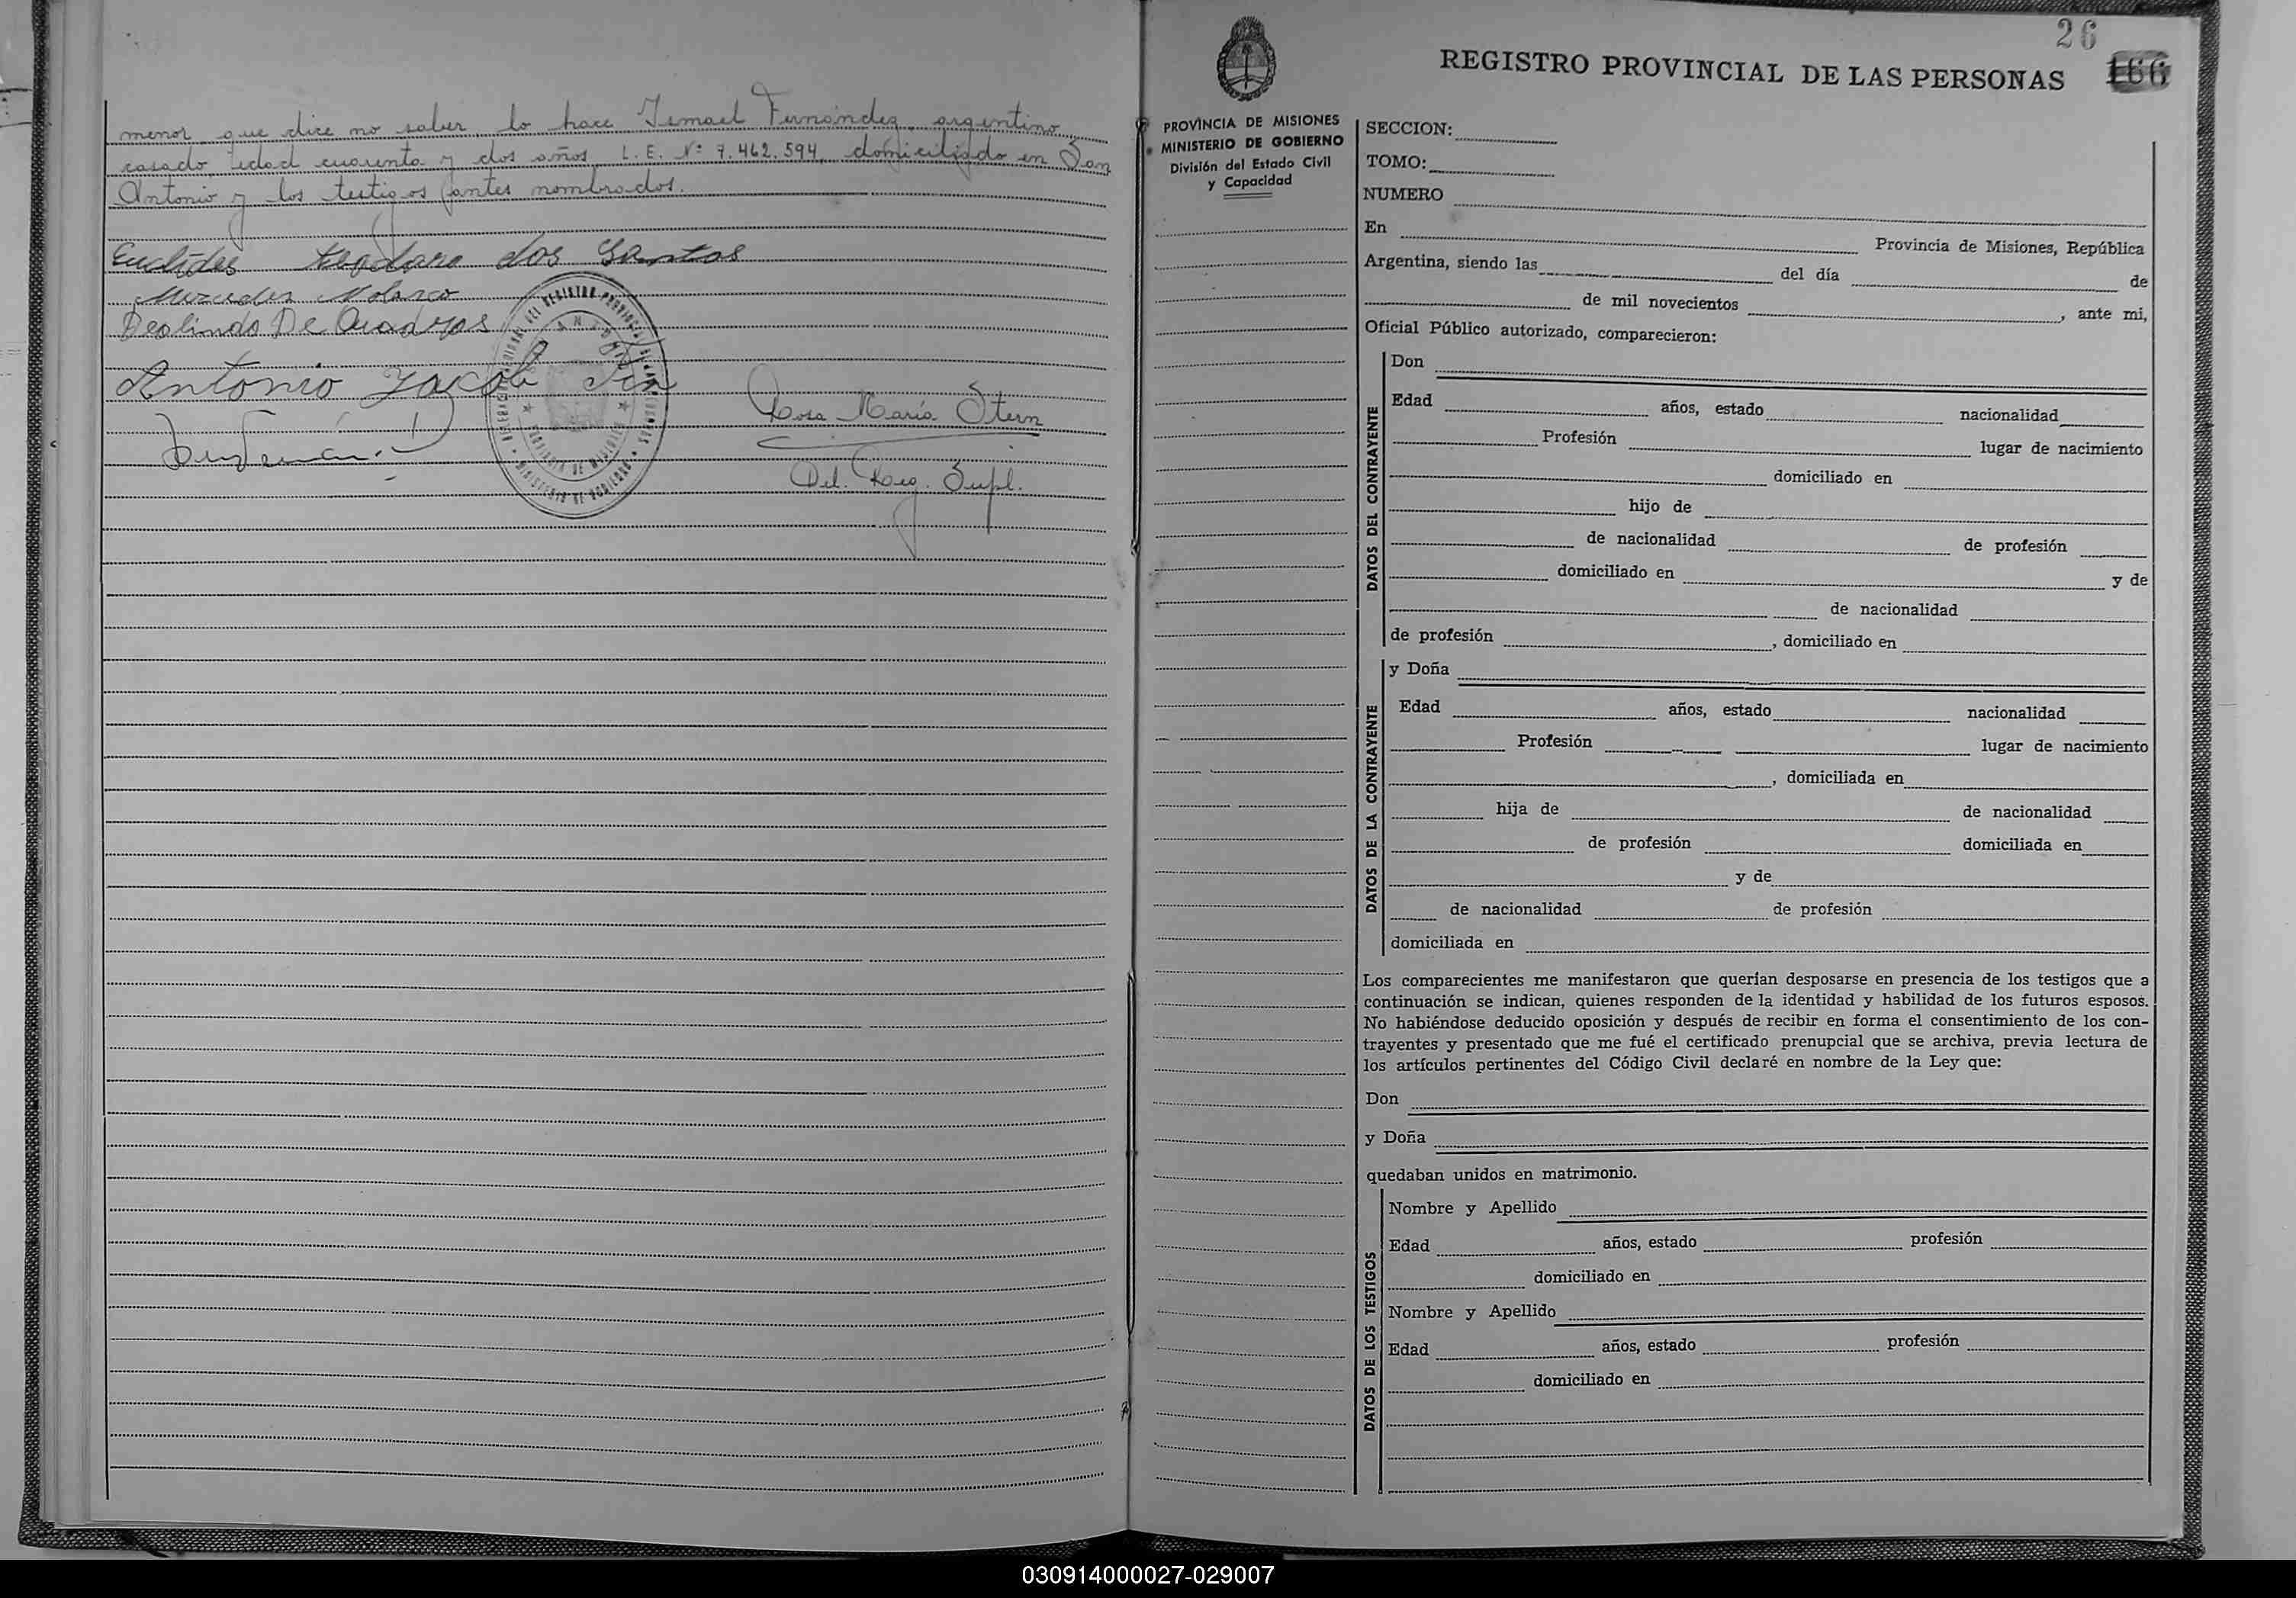 menor, que dice no saber, lo hace Ismael Fernández, argentino,
casado, edad cuarenta y dos años, L. E. Nº 7.462.594, domiciliado en San
Antonio y los testigos antes nombrados.
Euclides teodoro dos Santos
Mercedes Nolasco
Deolindo De
Antonio Jacob
Rosa María Stern
Del. Reg. Supl.
26
166
REGISTRO PROVINCIAL DE LAS PERSONAS
PROVINCIA DE MISIONES
MINISTERIO DE GOBIERNO
División del Estado Civil
y Capacidad
SECCION:
TOMO:
NUMERO
En Provincia de Misiones, República
Argentina, siendo las del día de
de mil novecientos , ante mi,
Oficial Público autorizado, comparecieron:
DATOS DEL CONTRAYENTE
Don
Edad años, estado nacionalidad
Profesión lugar de nacimiento
domiciliado en
hijo de
de nacionalidad de profesión
domiciliado en y de
de nacionalidad
de profesión , domiciliado en
DATOS DE LA CONTRAYENTE
y Doña
Edad años, estado nacionalidad
Profesión lugar de nacimiento
, domiciliada en
hija de de nacionalidad
de profesión domiciliada en
y de
de nacionalidad de profesión
domiciliada en
Los comparecientes me manifestaron que querían desposarse en presencia de los testigos que a
continuación se indican, quienes responden de la identidad y habilidad de los futuros esposos.
No habiéndose deducido oposición y después de recibir en forma el consentimiento de los con-
trayentes y presentado que me fué el certificado prenupcial que se archiva, previa lectura de
los artículos pertinentes del Código Civil declaré en nombre de la Ley que:
Don
y Doña
quedaban unidos en matrimonio.
DATOS DE LOS TESTIGOS
Nombre y Apellido
Edad años, estado profesión
domiciliado en
Nombre y Apellido
Edad años, estado profesión
domiciliado en
030914000027-029007